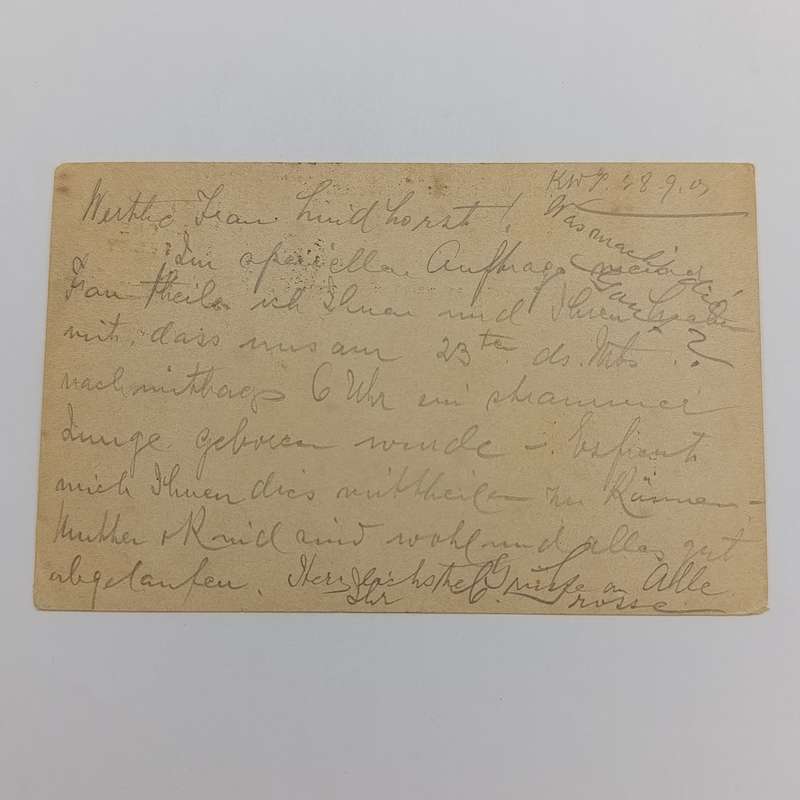 28.9.
Frau Lindhorst!
Im speciellen Auftrage meiner
Frau theile ich Ihnen und Ihrem
mit, dass uns am 23ten ds. Mts.
nachmittags 6 Uhr ein strammer
Junge geboren wurde – Es freut
mich Ihnen dies mittheilen zu Können –
Mutter & Kind sind wohl und alles gut
abgelaufen. Herzlichste Grüsse an Alle
Ihr
Was macht die
?